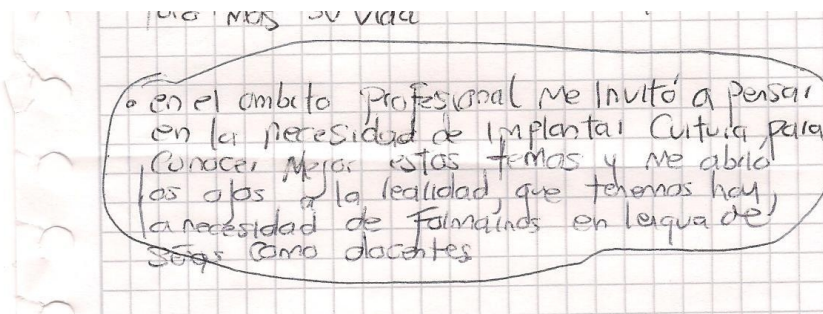 mas su vida
• en el ambito Profesional Me Invitó a Pensar
en la necesidad de Implantar Cultura, para
Conocer Mejor estos temas y Me abrió
los ojos a la realidad, que tenemos hoy,
la necesidad de Formarnos en lengua de
señas como docentes